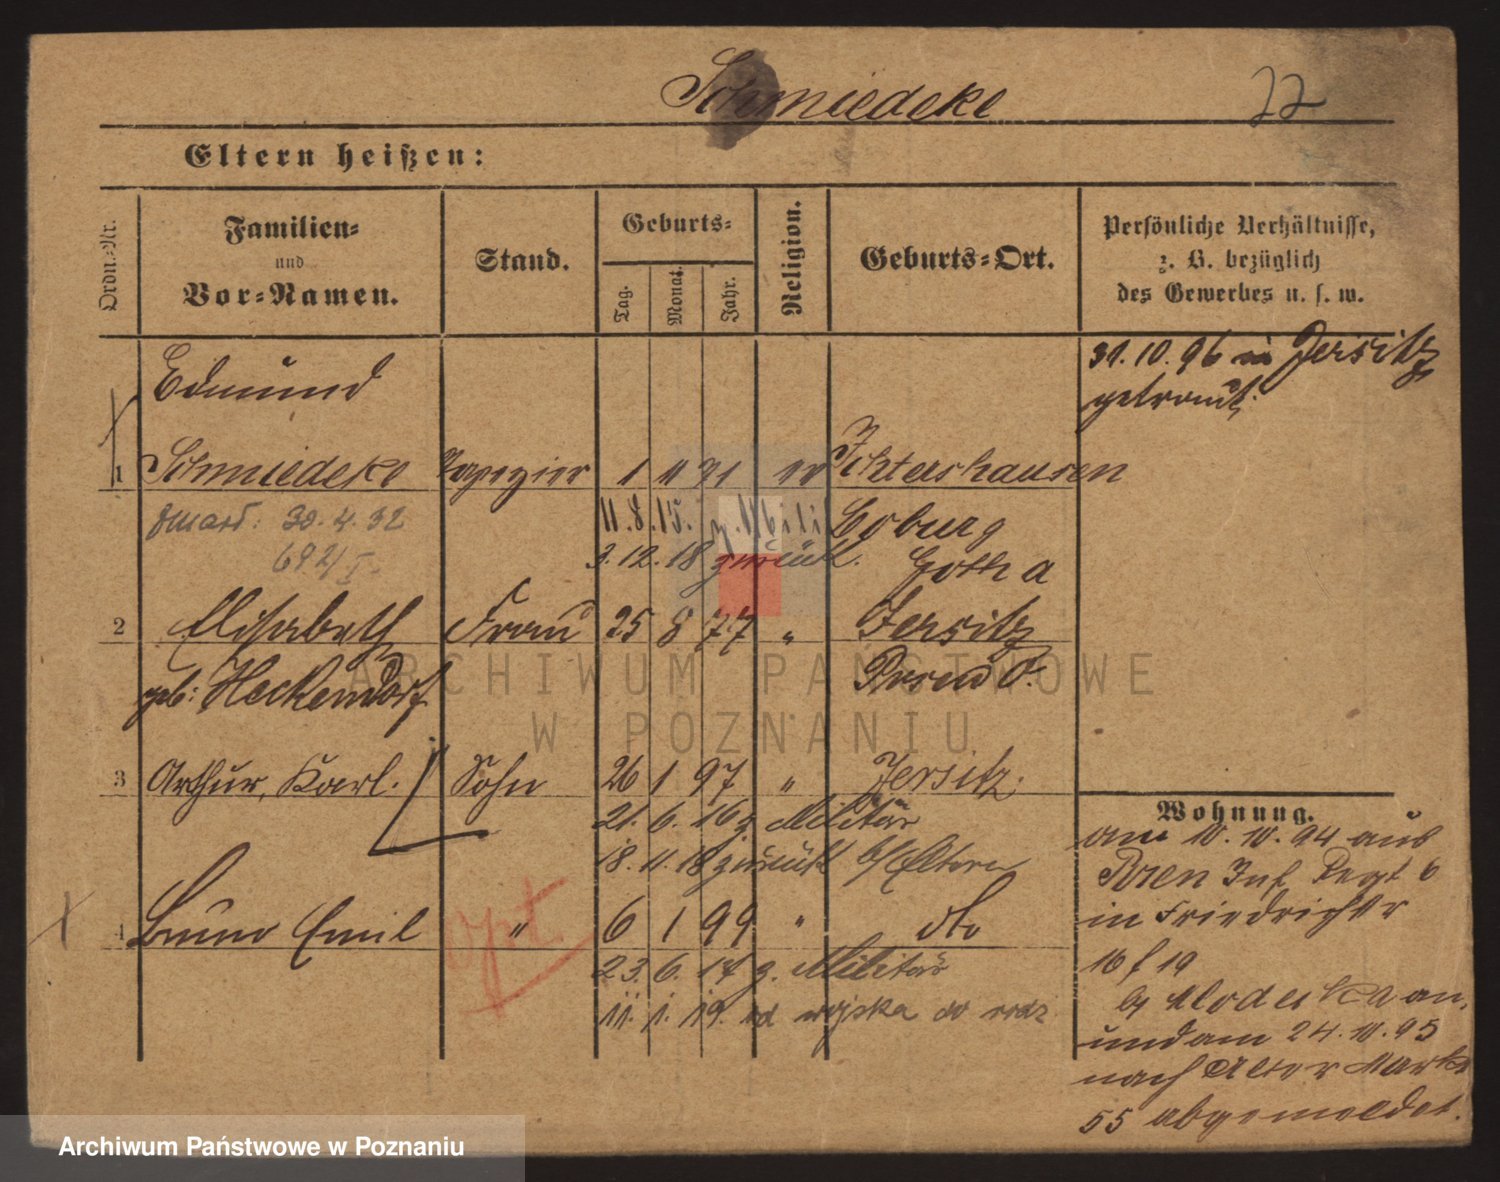 Schmiedeke 22
Eltern heißen:
Ordn.-Nr.
Familien-
und
Vor-Namen.
Stand.
Geburts-
Tag.
Monat.
Jahr.
Religion.
Geburts-Ort.
Persönliche Verhältnisse,
z. B. bezüglich
des Gewerbes u. s. w.
31.10.96 in Jersitz
getraut.
Edmund
1 Schmiedeke Tapezier 1 11 71 ev Ichtershausen
zmarł: 30.4.32 11.8.15. z. Milit Coburg
692/I. 3.12.18 zurück. Gotha
2 Elisabeth Frau 25 8 77 " Jersitz
geb: Heckendorf Posen O.
3 Arthur, Karl. Sohn 26 1 97 " Jersitz.
21. 6. 16 z. Militär
18. 11. 18 zurück b/ Eltern
4 Bruno Emil " 6 1 99 " dto
opt.
23. 6. 17 z. Militär
11. 1. 19. od wojska do rodz.
Wohnung.
am 10.10.94 aus
Posen Inf. Regt 6
in Friedrichstr
16 f 19
by Modeska an.
und am 24.10.95
nach Alter Markt
55 abgemeldet.
ARCHIWUM PAŃSTWOWE
W POZNANIU
Archiwum Państwowe w Poznaniu